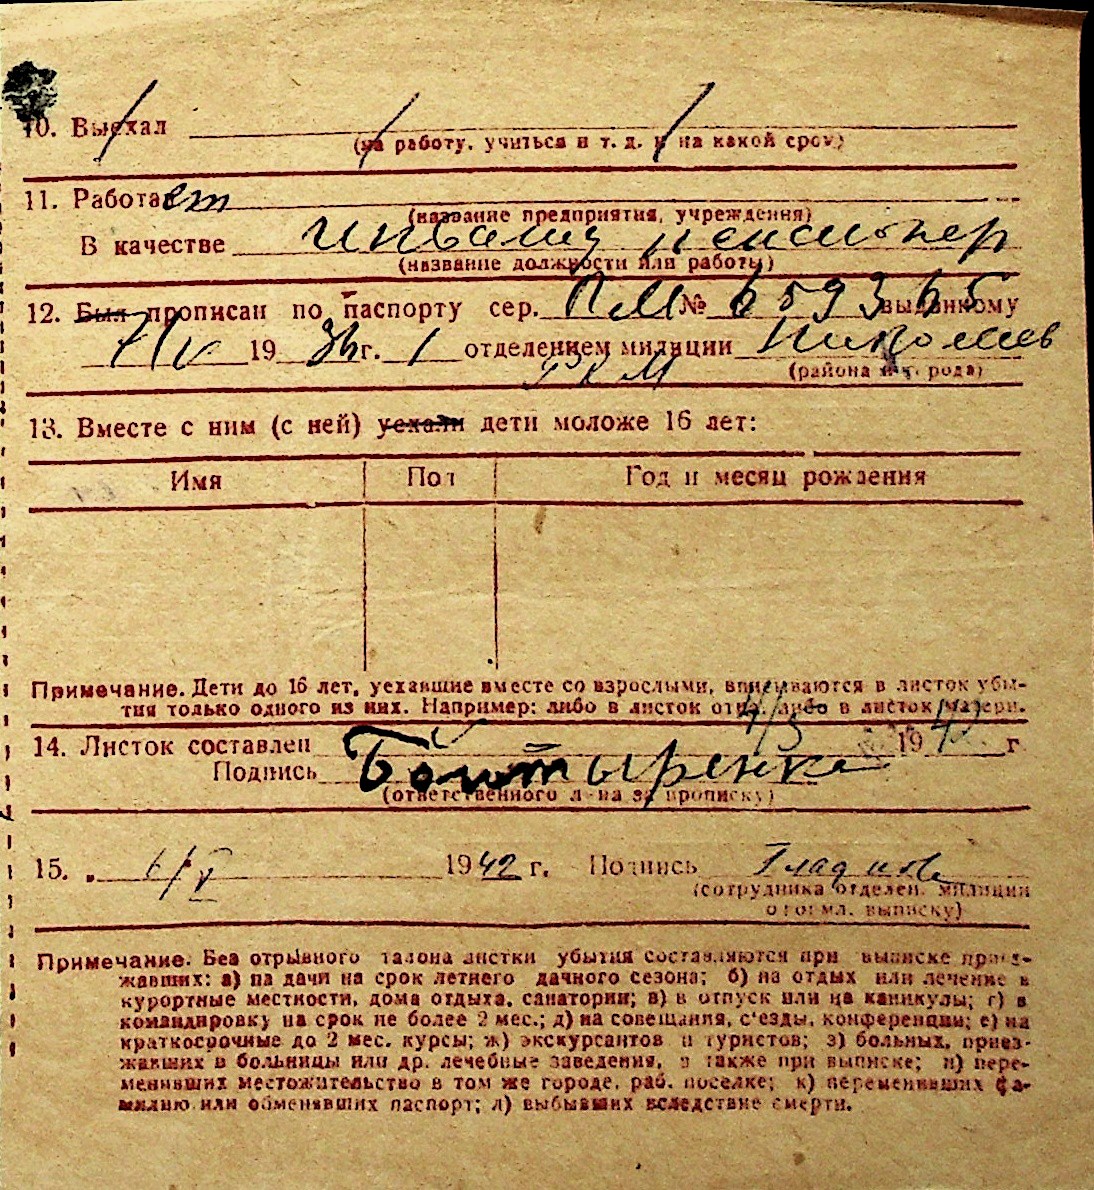 10. Выехал
(на работу, учиться и т. д. и на какой срок)
11. Работает
(название предприятия, учреждения)
В качестве инвалид пенсионер
(название должности или работы)
12. Был прописан по паспорту сер. ПМ № 659365 выданному
7/IV 19 36 г. 1 отделением милиции Николаев
РКМ (района и гор. рода)
13. Вместе с ним (с ней) уехали дети моложе 16 лет:
Имя Пол Год и месяц рождения
Примечание. Дети до 16 лет, уехавшие вместе со взрослыми, вписываются в листок убы-
тия только одного из них. Например: либо в листок отца, либо в листок матери.
14. Листок составлен 4/5 1942 г
Подпись
(ответственного л-ца за прописку)
15. 6/V 1942 г. Подпись
(сотрудника отделен. милиции
оформл. выписку)
Примечание. Без отрывного талона листки убытия составляются при выписке приез-
жавших: а) на дачи на срок летнего дачного сезона; б) на отдых или лечение в
курортные местности, дома отдыха, санатории; в) в отпуск или на каникулы; г) в
командировку на срок не более 2 мес.; д) на совещания, с'езды, конференции; е) на
краткосрочные до 2 мес. курсы; ж) экскурсантов и туристов; з) больных, приез-
жавших в больницы или др. лечебные заведения, а также при выписке; и) пере-
менивших местожительство в том же городе, раб. поселке; к) переменивших фа-
милию или обменявших паспорт; л) выбывших вследствие смерти.